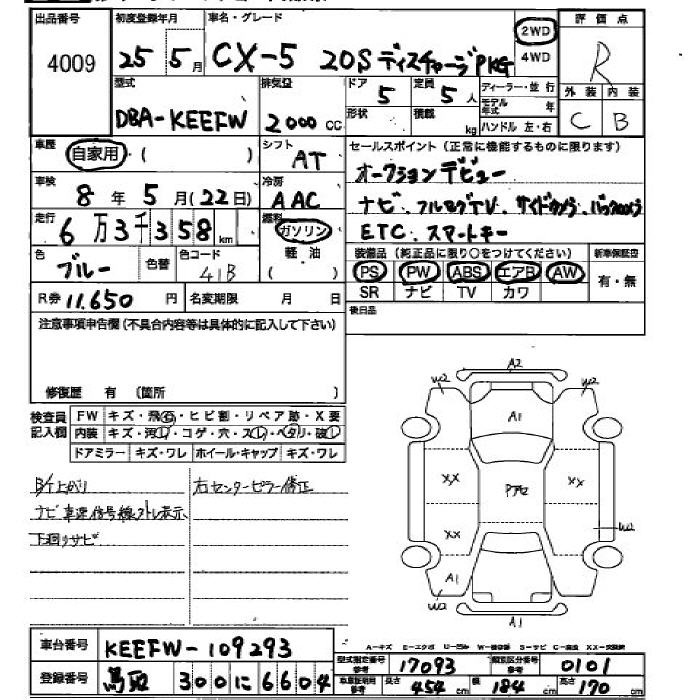 出品番号 初度登録年月 車名・グレード 2WD 4WD 評価点
4009 25年 5月 CX-5 20S ディスチャージPKG R
型式 排気量 ドア 定員 ディーラー・並行 外装 内装
DBA-KEEFW 2000 CC 5 5人 モデル年式 年 C B
形状 積載 kg ハンドル 左・右
車歴 自家用・( ) シフト AT セールスポイント(正常に機能するものに限ります)
オークションデビュー
車検 8年 5月(22日) 冷房 AAC ナビ、フルセグTV、サイドカメラ、バックカメラ
走行 6万3千358km 燃料 ガソリン 軽油 ( ) ETC、スマートキー
色 ブルー 色替 色コード 41B 装備品(純正品に限り○をつけてください) 新車保証書
PS PW ABS エアB AW 有・無
SR ナビ TV カワ
R券 11,650円 名変期限 月 日 後日品
注意事項申告欄(不具合内容等は具体的に記入して下さい)
修復歴 有 (箇所 )
検査員記入欄 FW キズ・飛石・ヒビ割・リペア跡・X要
内装 キズ・汚レ・コゲ・穴・スレ・ベタリ・破レ
ドアミラー キズ・ワレ ホイール・キャップ キズ・ワレ
右センターピラー修正
下回りサビ
A2
W2 W2
A1
XX XX
XX
W2
A1
W2
A1
A-キズ E-エクボ U-凹み W-補修跡 S-サビ C-腐食 XX-交換済
車台番号 KEEFW-109293
型式指定番号 参考 17093 類別区分番号 参考 0101
登録番号 鳥取 300 に 6604 車庫証明用 参考 長さ 454 cm 幅 184 cm 高さ 170 cm